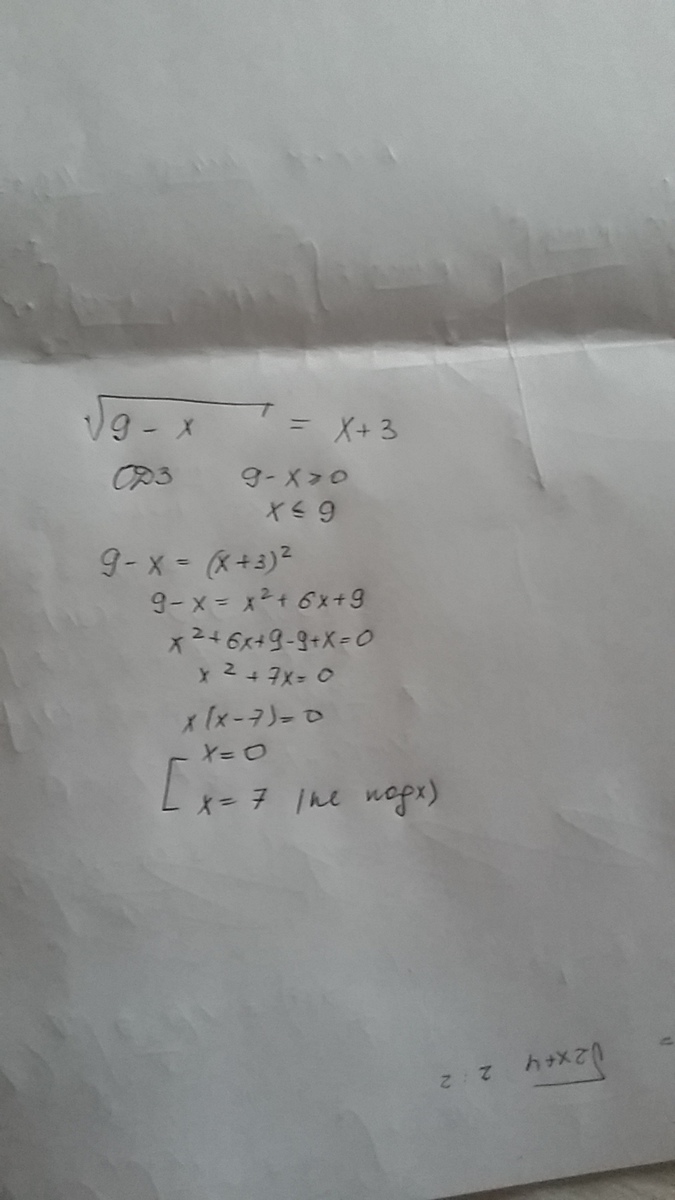 √9 - x = x + 3
ОДЗ 9 - x ≥ 0
x ≤ 9
9 - x = (x+3)²
9 - x = x² + 6x + 9
x² + 6x + 9 - 9 + x = 0
x² + 7x = 0
x (x - 7) = 0
[ x = 0
x = 7 (не подх)
= √2x+4 2 : 2